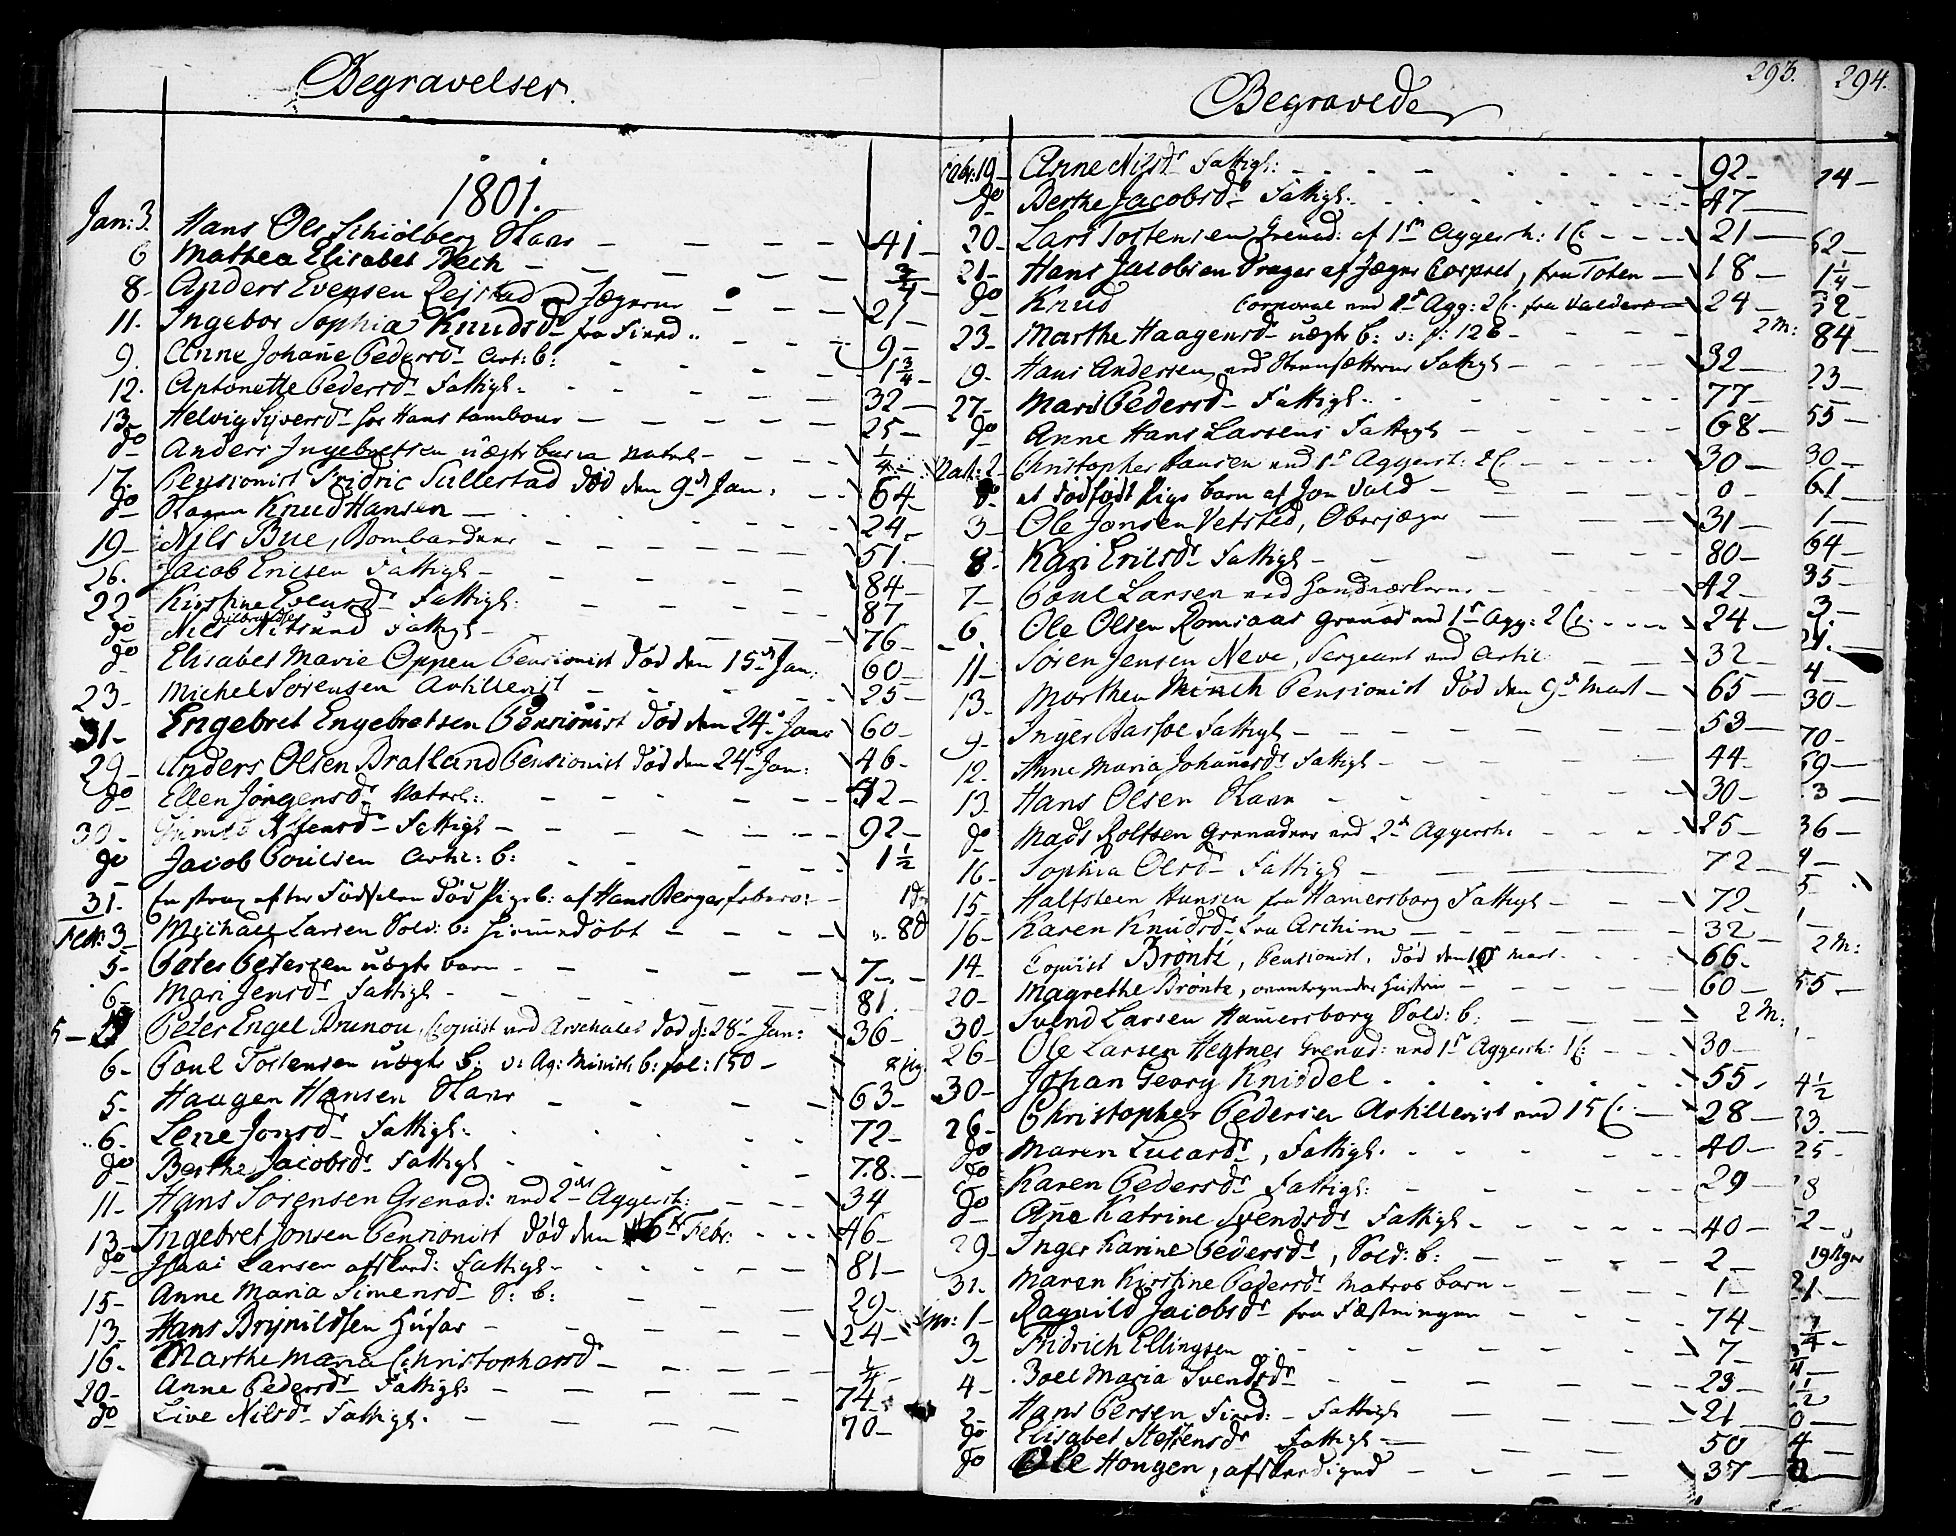 Begravelser.
1801.
Jan: 3. Hans Ols Schiolberg Slave - 41 -
6 Mathea Elisabet Rech - 3/4 -
8 - Anders Evensen Rejstad Jægerne - 21 -
11. Ingebor Sophia Knudsdr fra Finnd.. - 9 -
9. Anne Johañe Pedersdr Art: b: - 1 3/4 -
12. Antonette Pedersdr Fattigh - 32 -
13 - Helvig Siversdr hos Hans tambour - 25 -
do Anders Ingebretsen uægte barn - 1/4 -
17. Pensionist Fridric Sullestad död den 9de Jan: - 64 -
do Slaven Knud Hansen - 24 -
19 - Nils Bue, Bombardeer - 51. -
26. Jacob Ericsen Fattigh - 84 -
22 - Kirstine Evensdr Fattigh: - 87
do Nils Nitsund Fattigh - 76 -
do Elisabet Marie Oppen Pensionist död den 15de Jan: 60 -
23 - Michel Sörensen Artillerist - 25 -
31 - Engebret Engebretsen Pensionist död den 24de Jan: 60 -
29 - Anders Olsen Bratland Pensionist död den 24de Jan: 46 -
do Ellen Jörgensdr - 32 -
30 - Alfensdr - Fattigh - 92 -
do Jacob Poulsen Artil: b: - 1 1/2
31. En strax efter Födselen död Pigeb: af Hans Berger - 1 d
Febr: 3 - Michael Larsen Sold: b: hiemmedöbt - 8 d
5 - Peter Petersen uægte barn - 7 -
6 - Mari Jensdr Fattigh - 81.
5 - Peter Engel Brunou, Copiist ved Arsenalet död d: 28de Jan: 36 -
6 - Poul Tostensen uægte b: v: Ag: Minist: b: fol: 150 -
5 - Haagen Hansen Slave - 63 -
6 - Lene Jonsdr Fattigh - 72 -
do Berthe Jacobsdr Fattigh - 78. -
11 - Hans Sörensen Grenad: ved 2det Aggersh: - 34
13 - Ingebret Jonsen Pensionist död den 6te Febr: - 46 -
do Isaai Larsen afsked: Fattigh - 81 -
15 - Anne Maria Simensdr S: b: - 29 -
13 - Hans Brynildsen Husar - 24 -
16 - Marthe Maria Christophersdr - 1/4 -
20 - Anne Pedersdr Fattigh - 74 -
do Live Nilsdr Fattigh. - 70 -
Begravede
293.
Febr: 19 - Anne Nilsdr Fattigh: - 92 -
do Berthe Jacobsdr Fattigh - 47 -
20 - Lars Tostensen Grenad: af 1ste Aggersh: 1 C. - 21 -
21 - Hans Jacobsen Drager af Jæger Corpset, fra Toten - 18 -
do Knud Corporal ved 1ste Agg: 2 C. fra Valders - 24 -
23 - Marthe Haagensdr uægte b: v: p: 126 - 2 M:
19 - Hans Andersen ved Fattigh - 32 -
27 - Mari Pedersdr Fattigh. - 77 -
do Anne Hans Larsens Fattigh - 68 -
Mart: 2 - Christopher Hansen ved 1ste Aggersh: 2 C. - 30 -
do et dödfödt Pige barn af Jon Vold - 0 -
3 - Ole Jonsen Vetsted, Oberjæger - 31 -
8 - Kari Ericsdr Fattigh - 80 -
7 - Poul Larsen ved Handværkerne - 42 -
6. Ole Olsen Romsaas Grenad ved 1ste Agg: 2 C. - 24 -
11 - Sören Jensen Neve, Sergeant ved Artil: - 32 -
13 - Morthen Minch Pensionist död den 9de Mart - 65 -
9 - Inger Fattigh - 53 -
12. Anne Maria Johañesdr Fattigh - 44 -
13 Hans Olsen Slave - 30 -
do Mads Rolfsen Grenadeer ved 2det Aggersh: - 25 -
16 - Sophia Olsdr Fattigh - 72 -
15 - Halfsteen Hansen fra Hamersborg Fattigh - 72 -
16 - Karen Knudsdr - 32 -
14 - Copiist Bronte, Pensionist, död den 10 Mart. - 66 -
20 - Magrethe Bronte, ovenstaaende hustru - 60 -
30 - Svend Larsen Hamersborg Sold: b: - 2 M:
26 - Ole Larsen Hegtnes Grenad: ved 1ste Aggersh: 1 C: - 30 -
30 - Johan Georg Kniddel - 55 -
26 - Christopher Pedersen Artillerist ved 15 C. - 28 -
do Maren Lucasdr, Fattigh. - 40 -
do Karen Pedersdr Fattigh: - 29 -
do Añe Katrine Svendsdr Fattigh - 40 -
29 - Inger Karine Pedersdr, Sold: b: - 2 -
31. Maren Kirstine Pedersdr Matros barn - 1 -
Apr: 1 - Ragnild Jacobsdr fra Fæstningen - 74 -
3 - Fridrich Ellingsen - 7 -
4 - Boel Maria Svendsdr - 23 -
2 - Hans Persen Finrd: - Fattigh - 21 -
do Elisabet Steffensdr Fattigh - 50
do Ole Hougen, afskediged - 37 -
294.
24 -
62 -
1 1/4 -
52 -
84 -
23 -
55 -
30 -
61 -
1 -
64 -
35 -
3 -
21.
4 -
30 -
70 -
69 -
3 -
36 -
4 -
5 -
2 M:
55 -
4 1/2
23. -
25 -
19 Uger
21. -